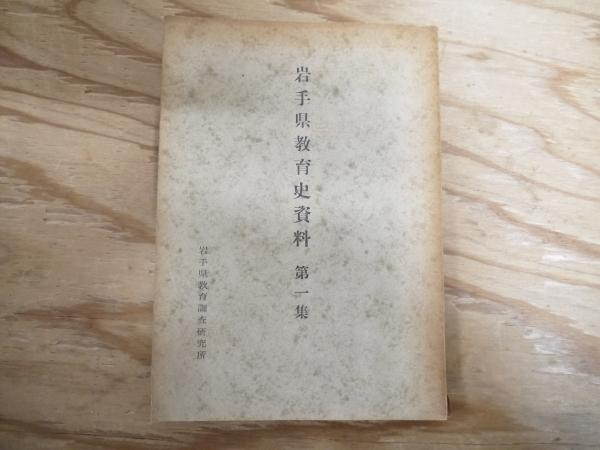 岩手県教育史資料 第一集
岩手県教育調査研究所